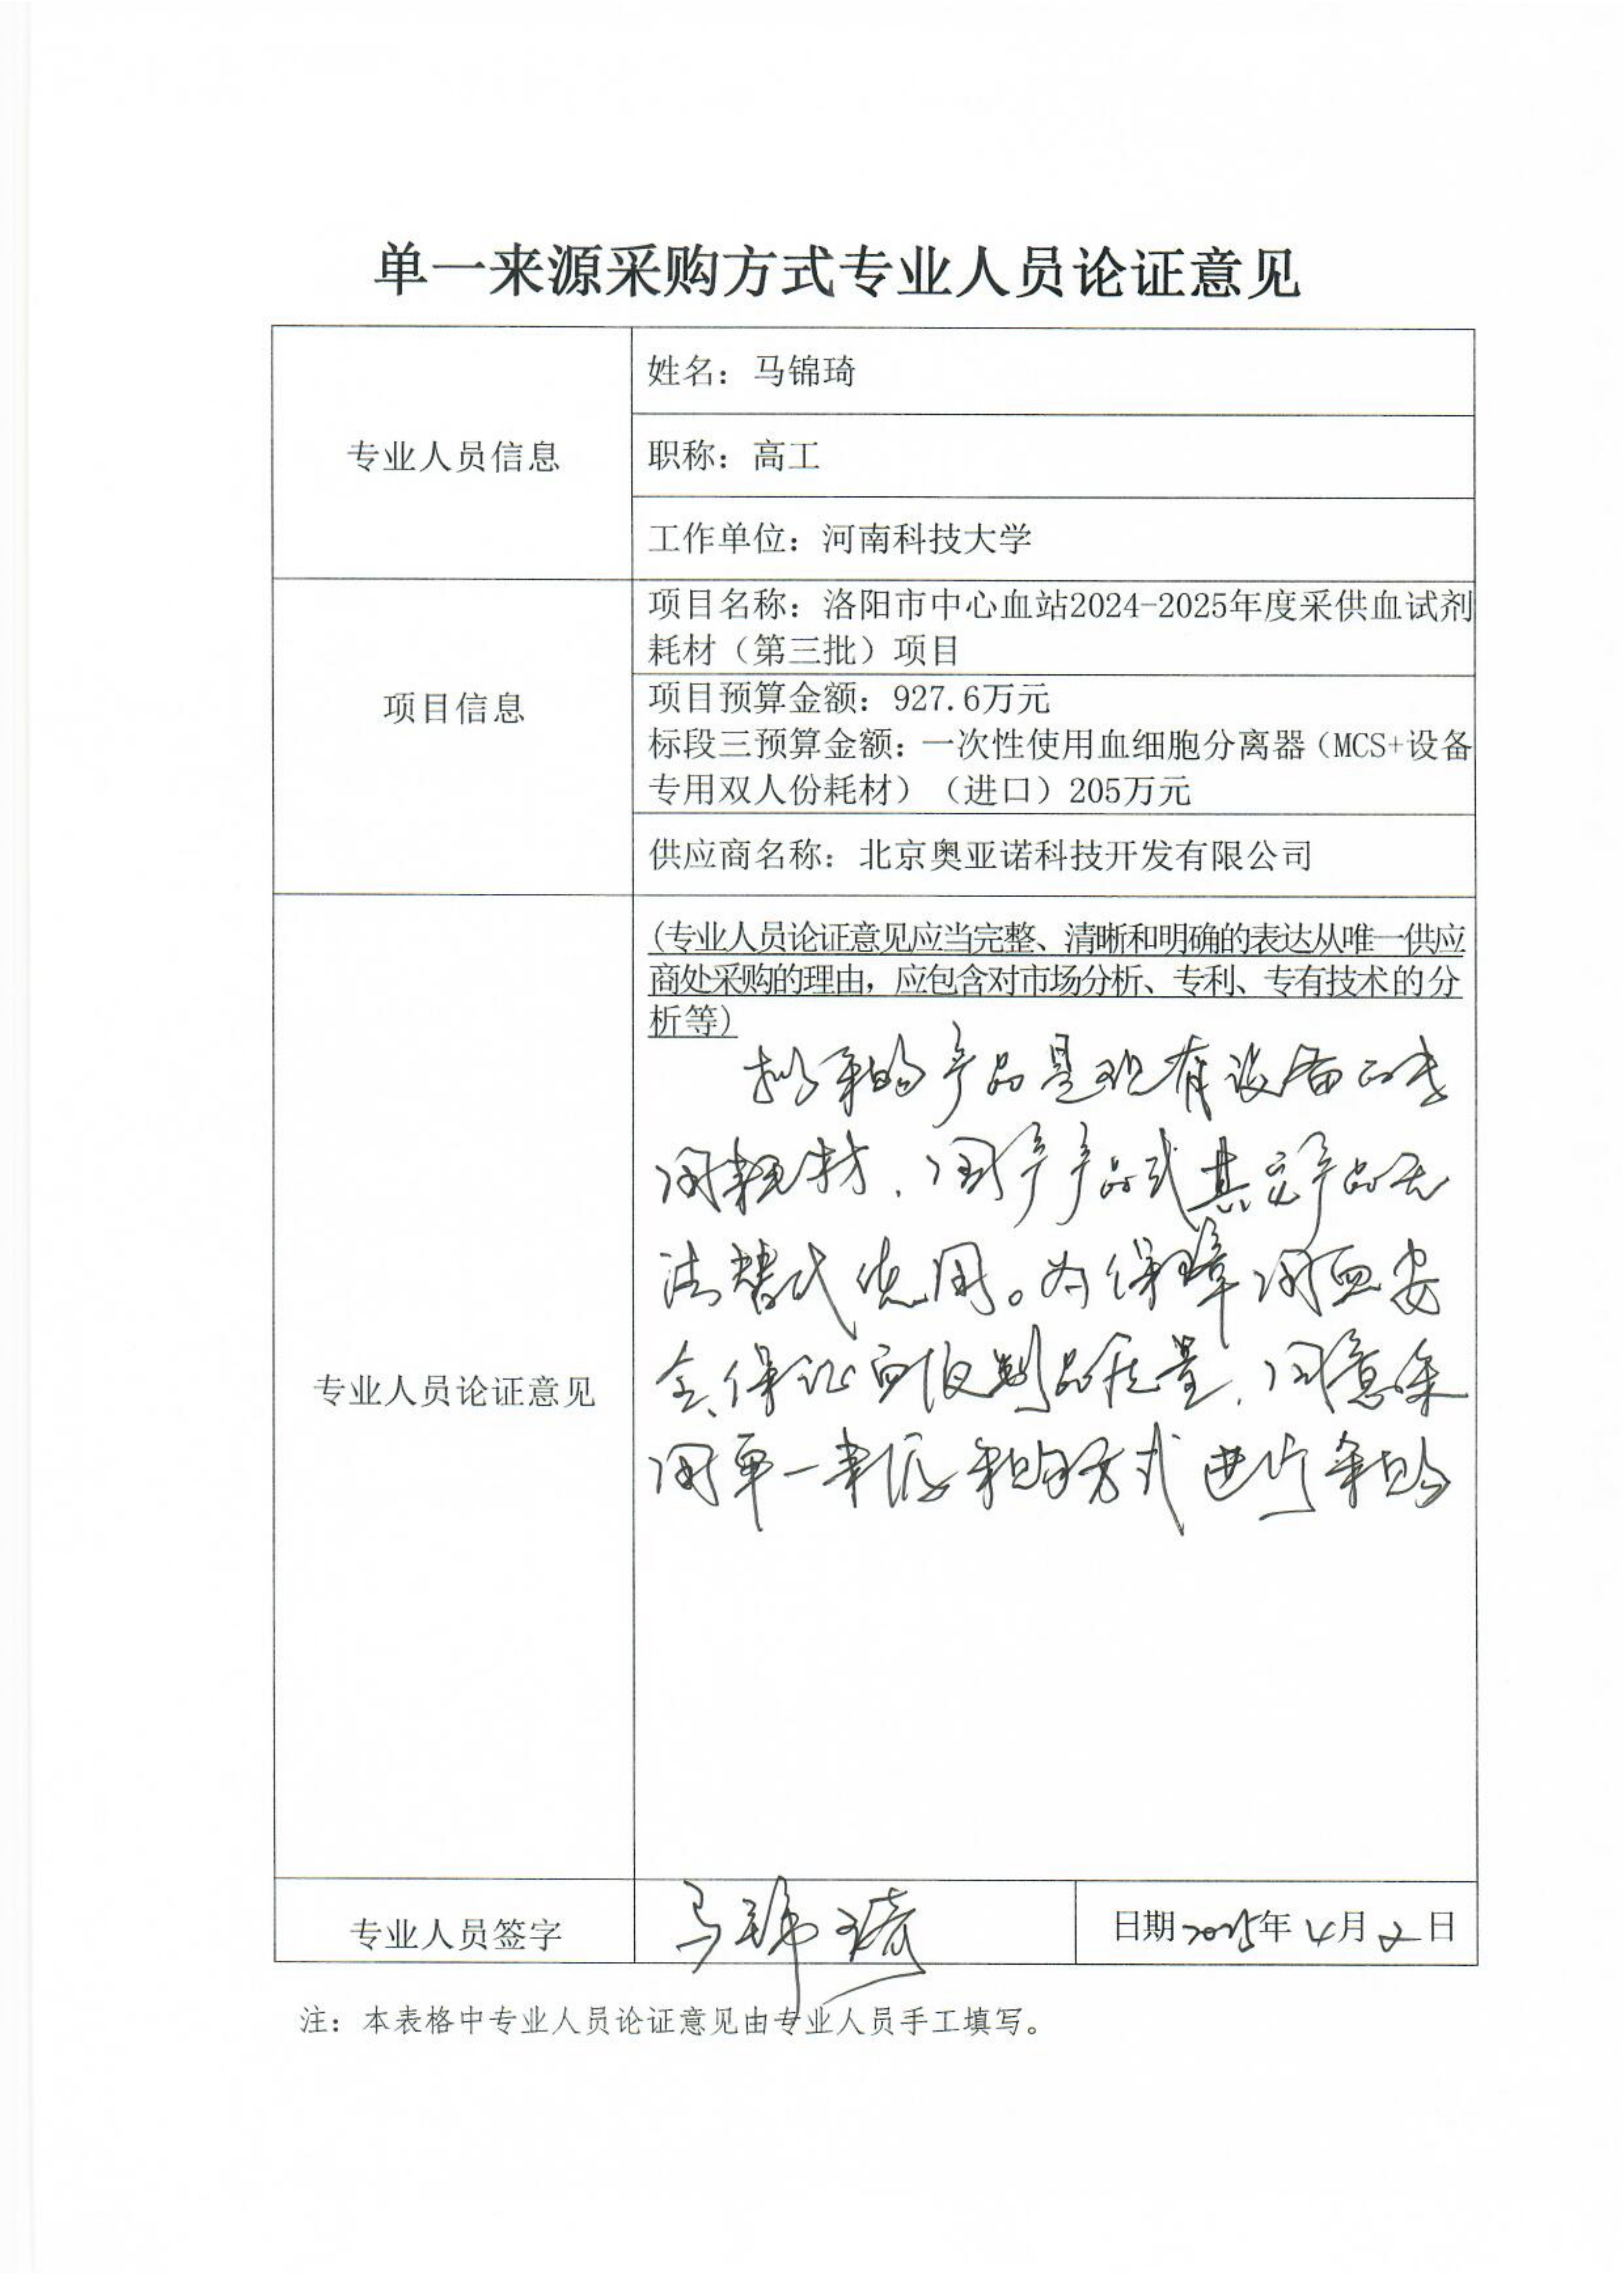 单一来源采购方式专业人员论证意见
专业人员信息
姓名：马锦琦
职称：高工
工作单位：河南科技大学
项目信息
项目名称：洛阳市中心血站2024-2025年度采供血试剂
耗材（第三批）项目
项目预算金额：927.6万元
标段三预算金额：一次性使用血细胞分离器（MCS+设备
专用双人份耗材）（进口）205万元
供应商名称：北京奥亚诺科技开发有限公司
专业人员论证意见
(专业人员论证意见应当完整、清晰和明确的表达从唯一供应
商处采购的理由，应包含对市场分析、专利、专有技术的分
析等)
拟采购产品是现有设备的专
用耗材，国产产品或其它产品无
法替代使用。为保障用血安
全、保证血液制品质量，同意采
用单一来源采购方式进行采购
专业人员签字
马锦琦
日期2025年4月2日
注：本表格中专业人员论证意见由专业人员手工填写。